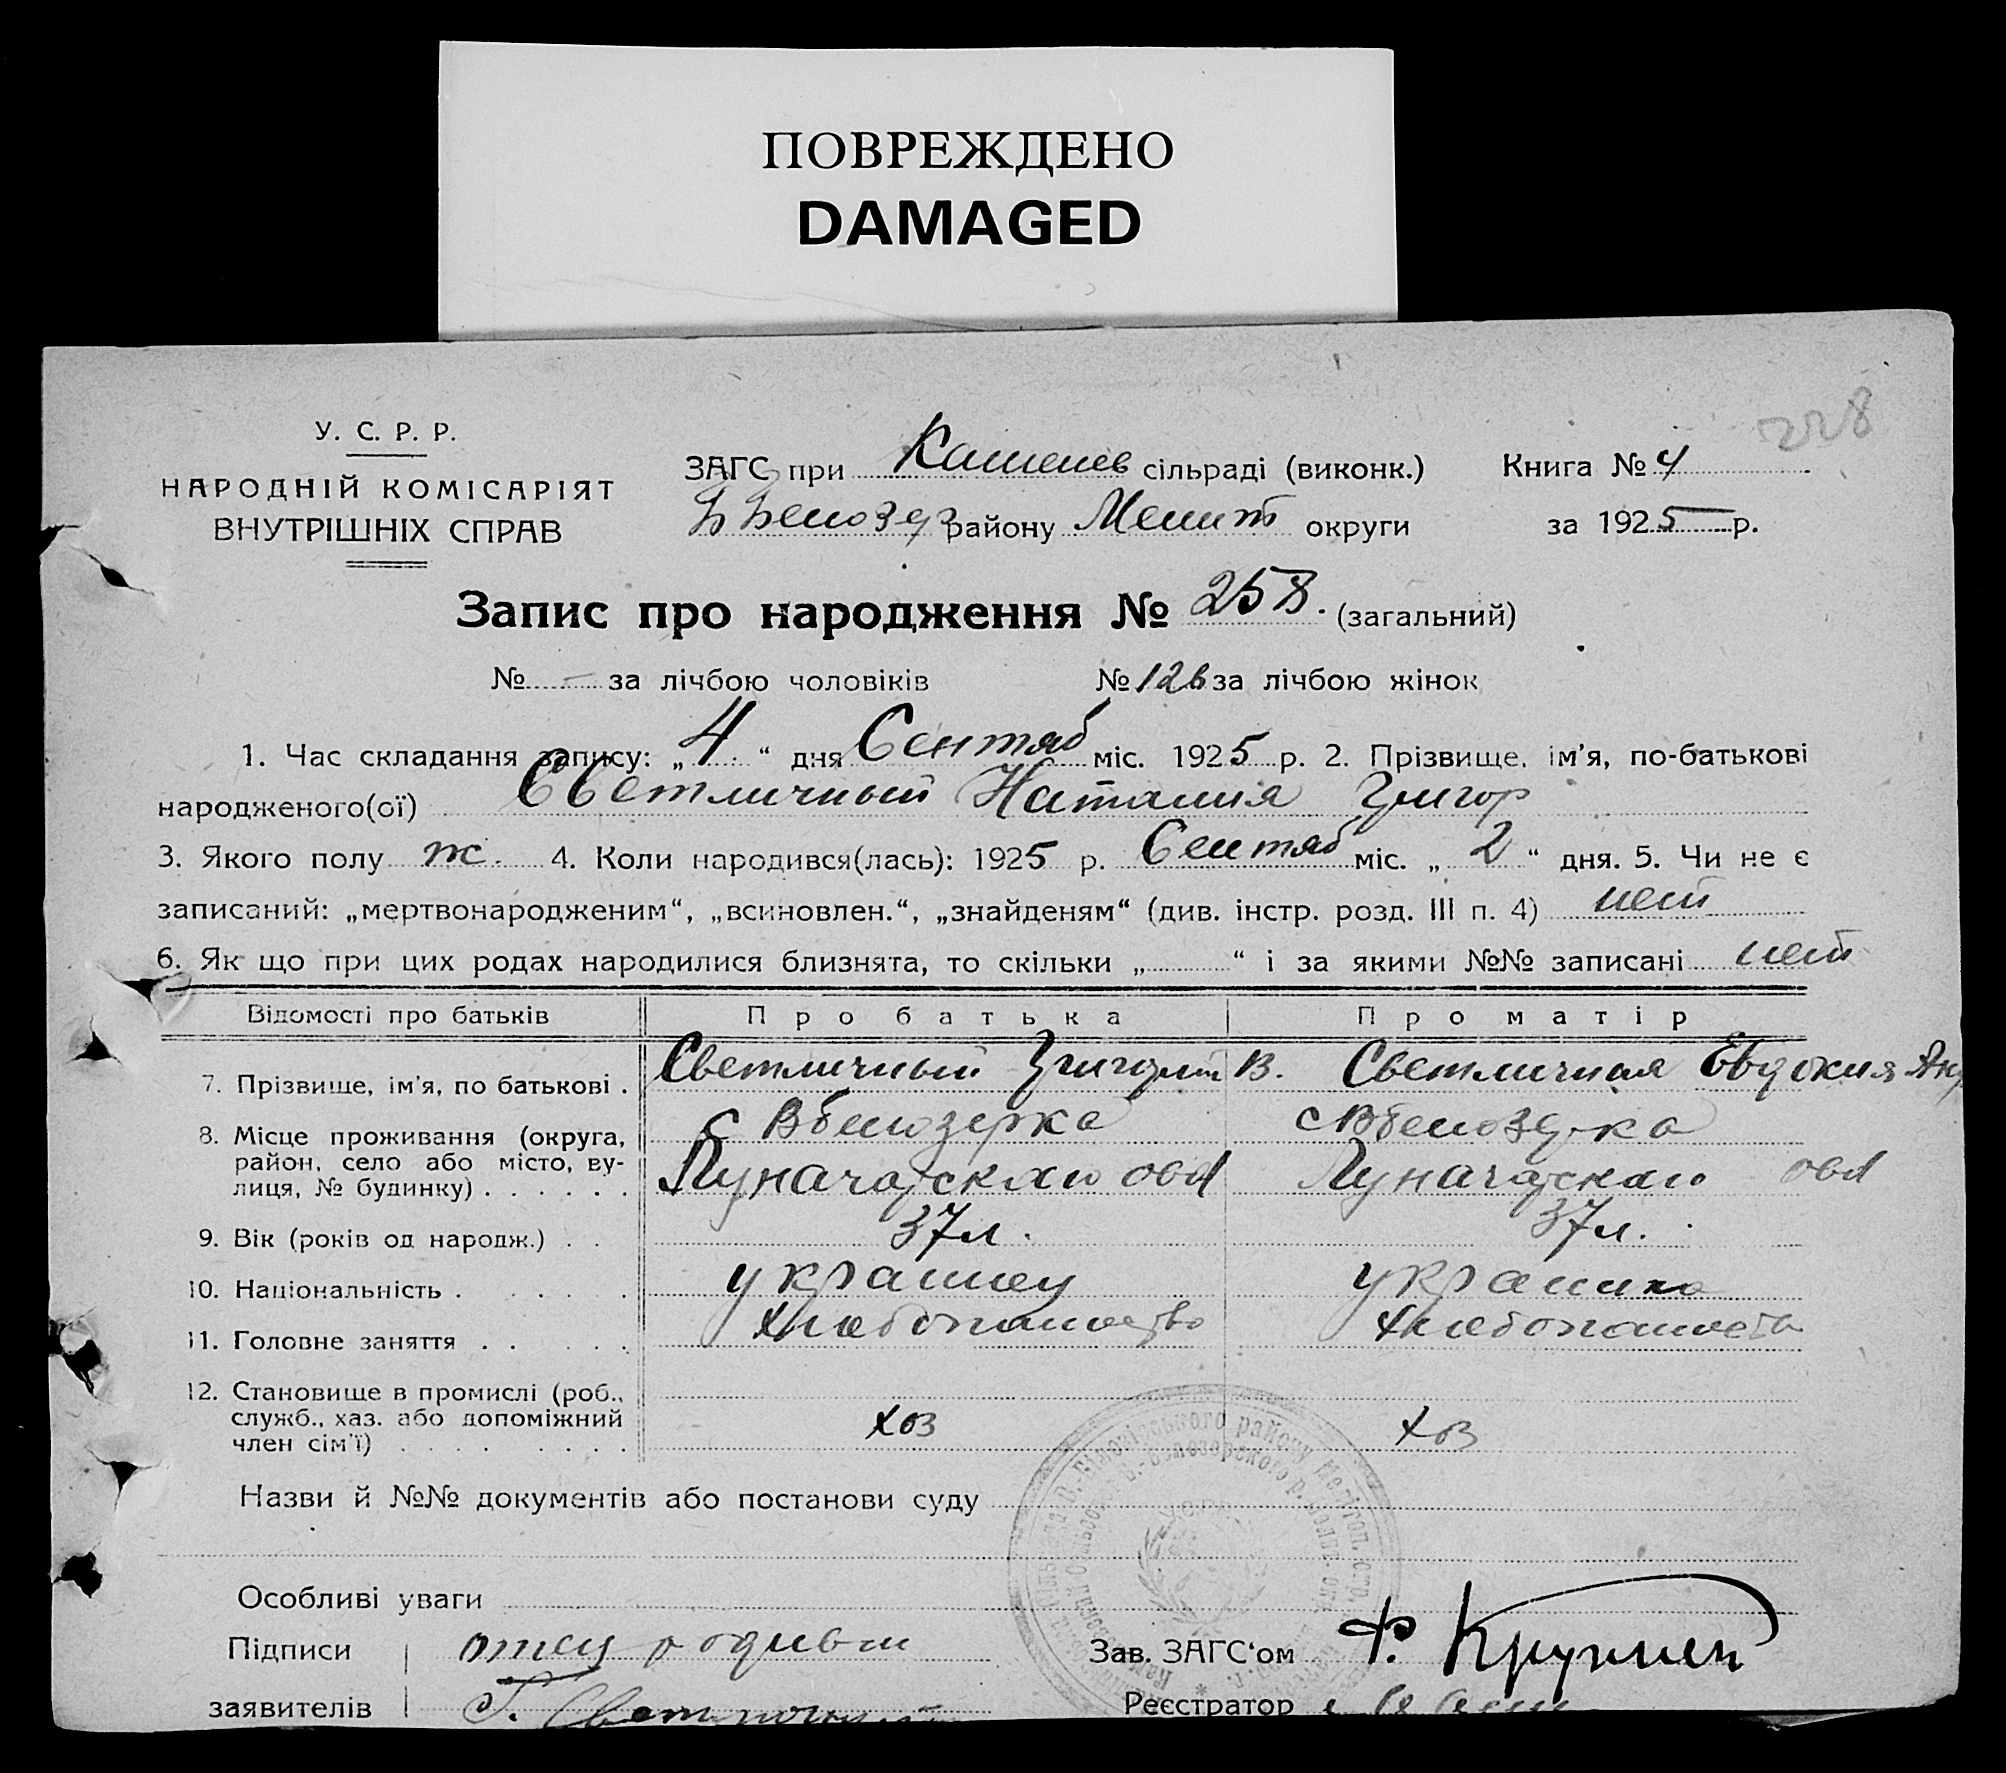 ПОВРЕЖДЕНО
DAMAGED
228
У. С. Р. Р.
НАРОДНІЙ КОМІСАРІЯТ
ВНУТРІШНІХ СПРАВ
ЗАГС при Каменев сільраді (виконк.)
В Белозер району Мелит округи
Книга № 4
за 1925 р.
Запис про народження № 258. (загальний)
№ - за лічбою чоловіків № 126 за лічбою жінок
1. Час складання запису: „4“ дня Сентяб міс. 1925 р. 2. Прізвище, ім'я, по-батькові
народженого(ої) Светличный Наталия Григор
3. Якого полу ж. 4. Коли народився(лась): 1925 р. Сентяб міс. „2“ дня. 5. Чи не є
записаний: „мертвонародженим“, „всиновлен.“, „знайденям“ (див. інстр. розд. III п. 4) нет
6. Як що при цих родах народилися близнята, то скільки „ “ і за якими №№ записані нет
Відомості про батьків Про батька Про матір
7. Прізвище, ім'я, по батькові . Светличный Григорий В. Светличная Евдокия Анд
8. Місце проживання (округа, с Вбелозерка с Вбелозерка
район, село або місто, ву-
лиця, № будинку) . . . . . . Луначарскаю
9. Вік (років од народж.) . . 37 л. 37 л.
10. Національність . . . . . . украинец украинка
11. Головне заняття . . . . . хлебопашество
12. Становище в промислі (роб.,
служб., хаз. або допоміжний хоз хоз
член сім'ї) . . . . . . . .
Назви й №№ документів або постанови суду
Особливі уваги
Підписи отец
заявителів Г. Светличный
Зав. ЗАГС'ом
Реєстратор